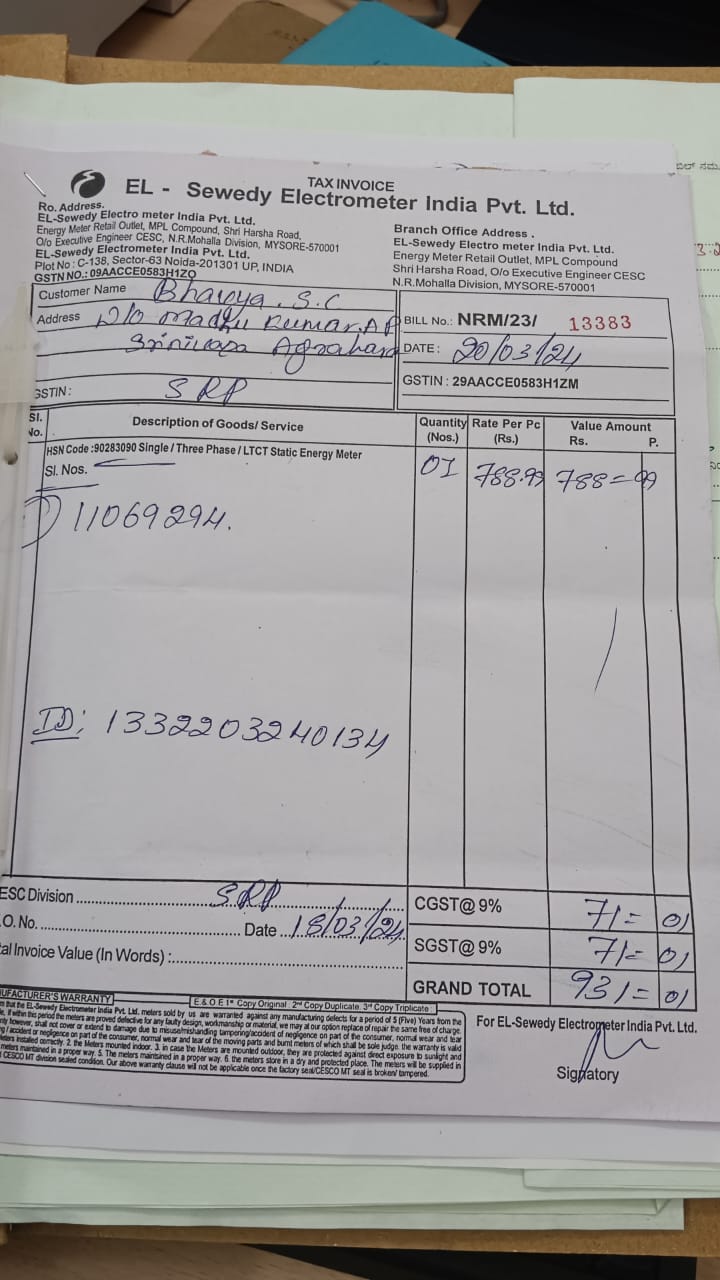 TAX INVOICE
EL - Sewedy Electrometer India Pvt. Ltd.
Ro. Address.
EL-Sewedy Electro meter India Pvt. Ltd.
Energy Meter Retail Outlet, MPL Compound, Shri Harsha Road,
O/o Executive Engineer CESC, N.R.Mohalla Division, MYSORE-570001
EL-Sewedy Electrometer India Pvt. Ltd.
Plot No : C-138, Sector-63 Noida-201301 UP, INDIA
GSTN NO.: 09AACCE0583H1ZO
Branch Office Address .
EL-Sewedy Electro meter India Pvt. Ltd.
Energy Meter Retail Outlet, MPL Compound
Shri Harsha Road, O/o Executive Engineer CESC
N.R.Mohalla Division, MYSORE-570001
Customer Name Bhavya . S.C
Address W/o Madhu Kumar. A P
Srinivasa Agrahara
GSTIN : SRP
BILL No.: NRM/23/ 13383
DATE : 20/03/24
GSTIN : 29AACCE0583H1ZM
Sl. No. Description of Goods/ Service Quantity (Nos.) Rate Per Pc (Rs.) Value Amount Rs. P.
HSN Code :90283090 Single / Three Phase / LTCT Static Energy Meter
Sl. Nos. 01 788.99 788=99
1) 11069294.
ID: 1332203240134
ESC Division SRP
CGST@ 9% 71= 01
.O. No. Date 18/03/24
SGST@ 9% 71= 01
tal Invoice Value (In Words) :
GRAND TOTAL 931= 01
UFACTURER'S WARRANTY
E & O E 1st Copy Original : 2nd Copy Duplicate. 3rd Copy Triplicate :
m that the EL-Sewedy Electrometer India Pvt. Ltd. meters sold by us are warranted against any manufacturing defects for a period of 5 (Five) Years from the
For EL-Sewedy Electrometer India Pvt. Ltd.
Signatory